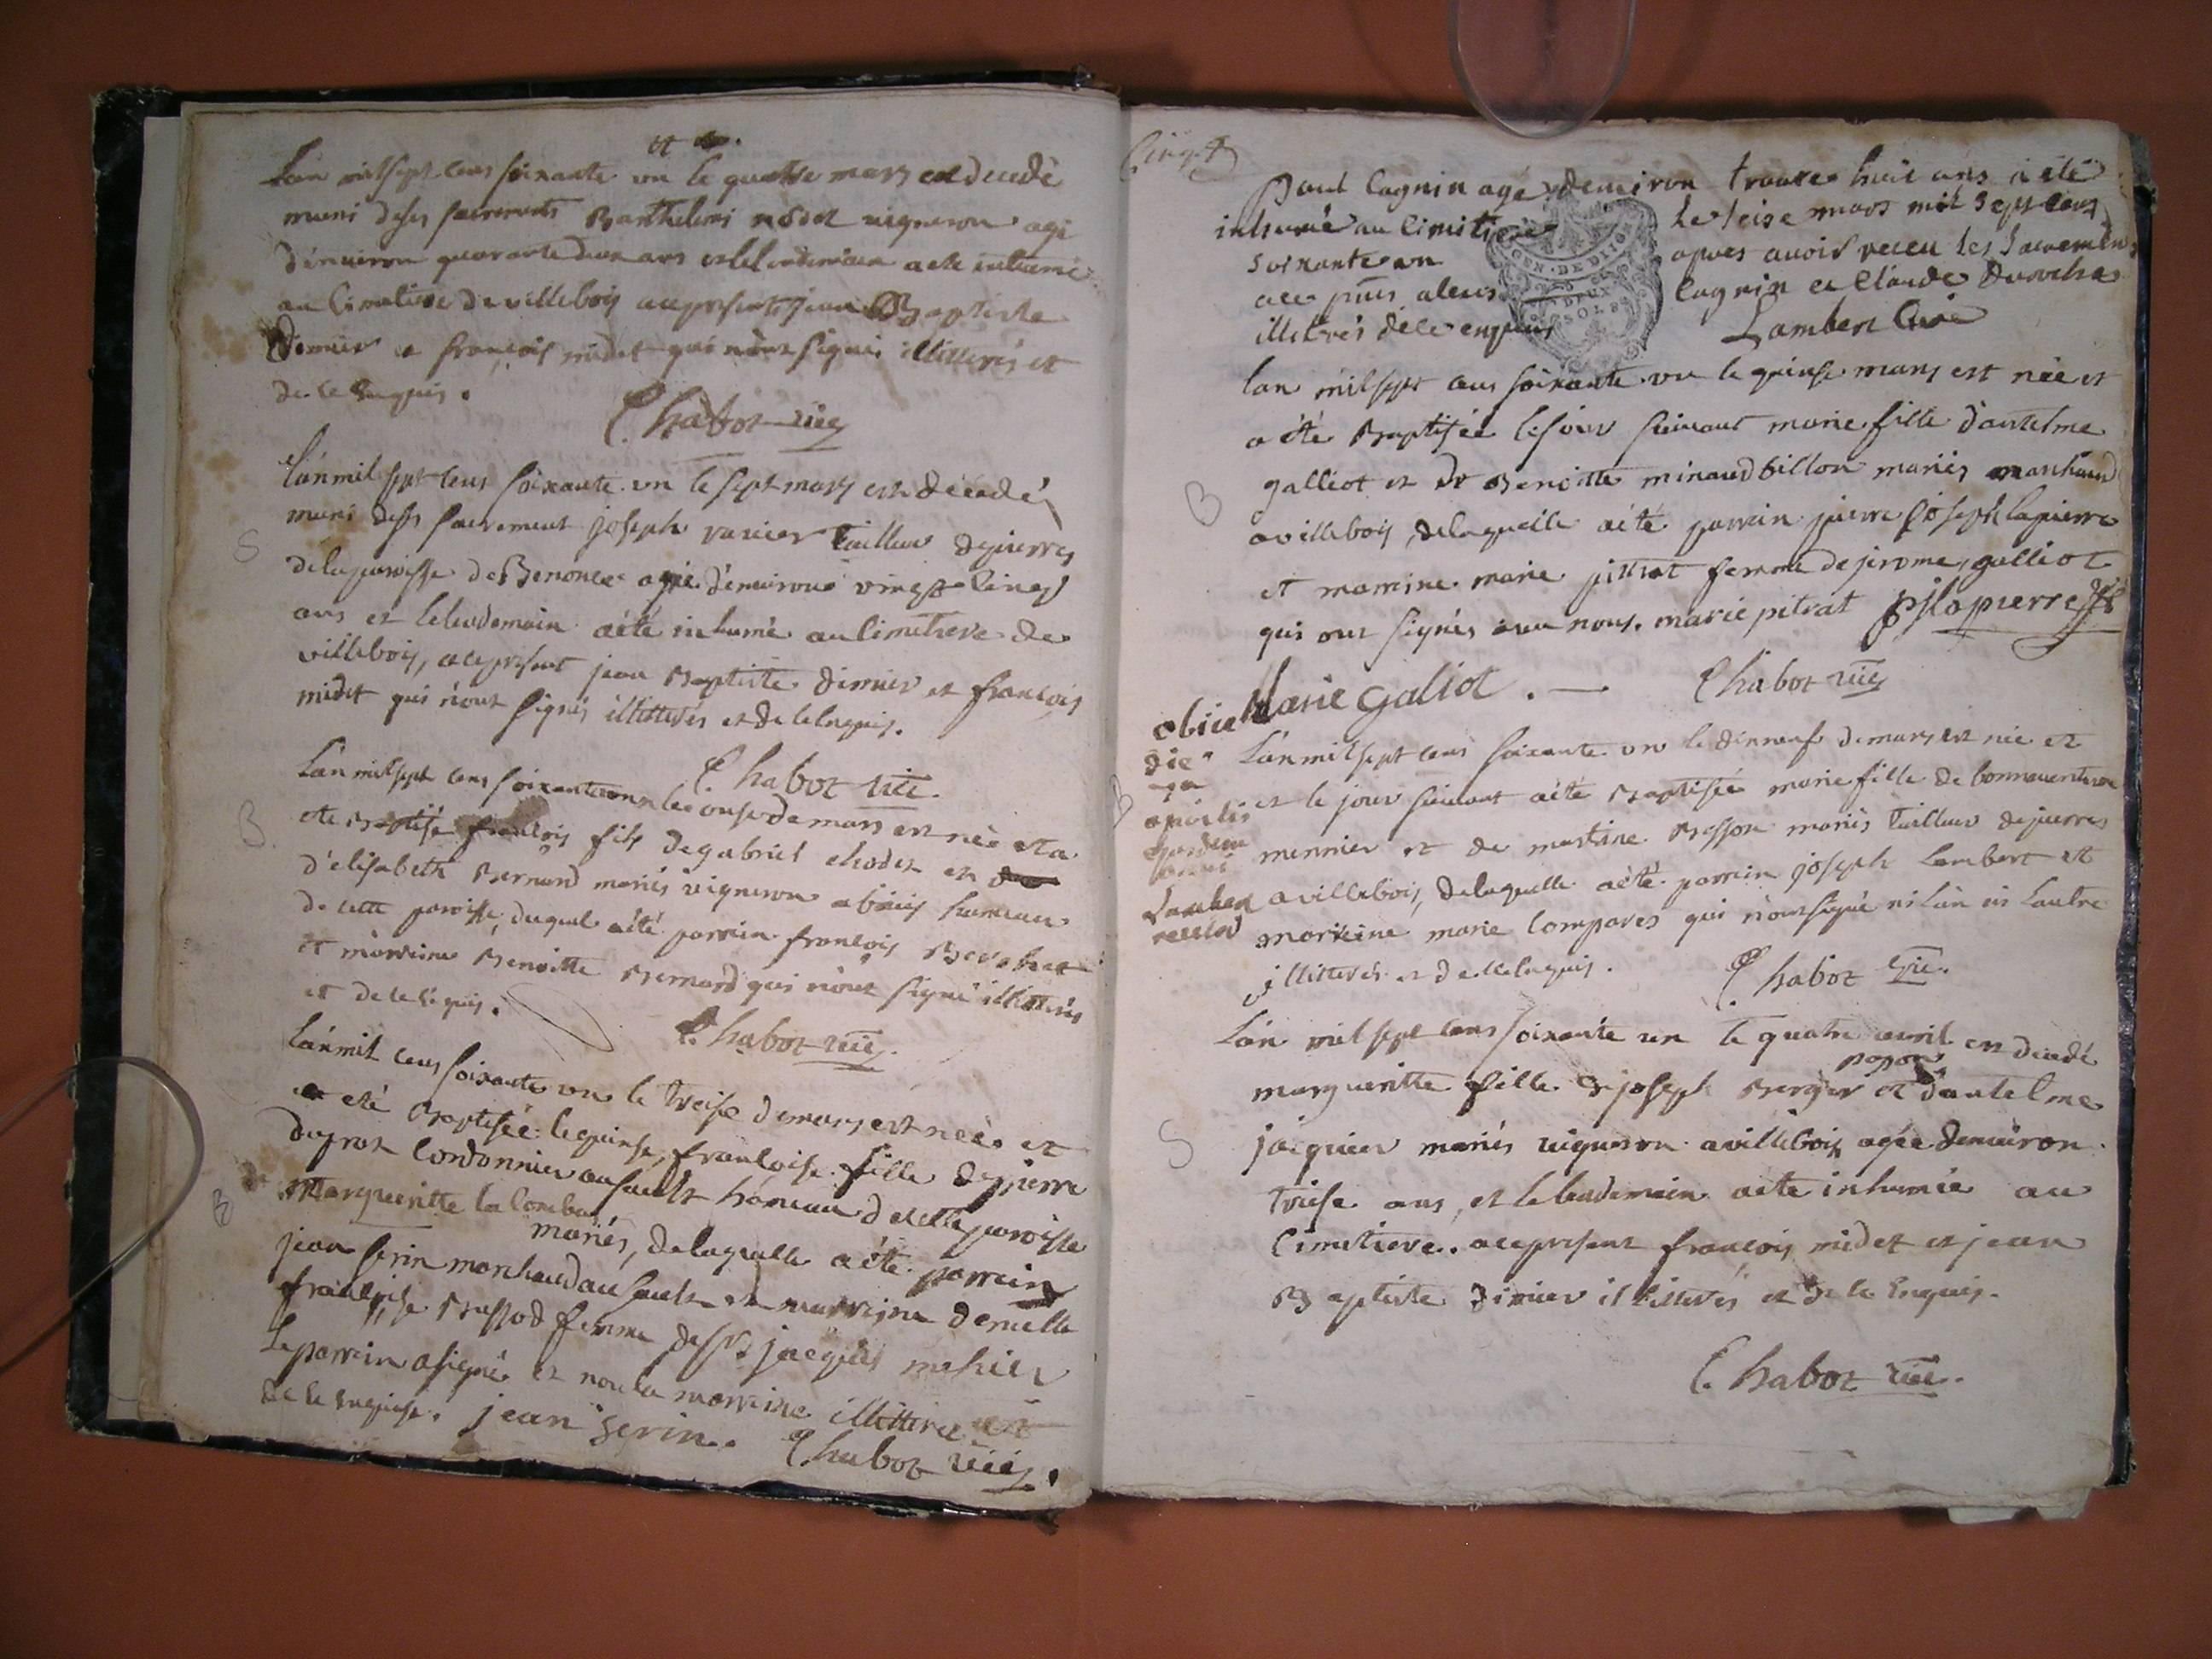 et
Lan mil sept cens soixante un le quatre mars est decedé
muni de ses sacrements Barthelemi vigneron agé
d'environ quarante deux ans et le lendemain a ete inhumé
au cimetiere de villebois acepresents jean Baptiste
Dimier et françois midet qui nont signés illitterés et
de ce enquis.
Chabot vic
L'an mil sept cens soixante un le sept mars est decedé
muni de ses sacrement joseph varvier tailleur de pierres
de la paroisse de Benonce agé d'environ vingt cinq
ans et le lendemain a été inhumé au cimetiere de
villebois, acepresent jean Baptiste dimier et françois
midet qui n'ont signés illitterés et de ce enquis.
Chabot vic.
L'an mil sept cens soixante un le onse de mars est né et a
ete Baptisé françois fils de gabriel chodet et
d'elisabeth Bernard mariés vigneron a hameau
de cette paroisse, duquel a été parrein françois
et marreine Benoitte Bernard qui n'ont signé illitterés
et de ce enquis.
Chabot vic.
L'an mil cens soixante un le treise de mars est neé et
a eté Baptisée le quinse, françoise fille de pierre
duprat cordonnier au sault hameau de cette paroisse
Margueritte la Combe
mariés, de laquelle a été parrein
jean serin marchand au sault et marreine demelle
françoise Bussod femme de sr jacques mehier
Le parrein a signé et non la marreine illitteree
de ce enquise. jean serin. Chabot vic.
Cinq
Paul Cagnin agé denviron trante huit ans a été
inhumé au Cimitiere Le seise mars mil sept cens
soixante un apres avoir receu les Sacremens
Cagnin et Claude
illitrés de ce enquis Lambert Curé
GEN. DE DIJON
DEUX SOLS
Lan mil sept cens soixante un le quinse mars est née et
a été Baptisée le jour suivant marie fille d'antelme
galliot et de Benoitte minaud billon mariés marchand
a villebois, de laquelle a été parrein pierre joseph lapierre
et marreine marie pittrat femme de jerome galliot
qui ont signés avec nous. marie pitrat pJ lapierre
Marie galiot. — Chabot vic
obiit
die
7a
aprilis
Lambert
rector
L'an mil sept cens soixante un le dixneuf de mars est née et
et le jour suivant a été Baptisée marie fille de bonnaventure
mennier et de martine Besson mariés tailleur de pierres
a villebois, de laquelle a été parrein joseph Lambert et
marreine marie Compares qui n'ont signé ni l'un ni l'autre
illitterés et de ce enquis. Chabot vic.
L'an mil sept cens soixante un le quatre avril est decedé
margueritte fille de joseph Berger et d'antelme
jacquier mariés vigneron a villebois agée denviron
treise ans, et le lendemain a ete inhumée au
Cimetiere. acepresent françois midet et jean
Baptiste Dimier illitterés et de ce enquis.
Chabot vic.